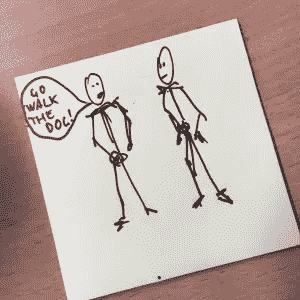 GO
WALK
THE
DOG!